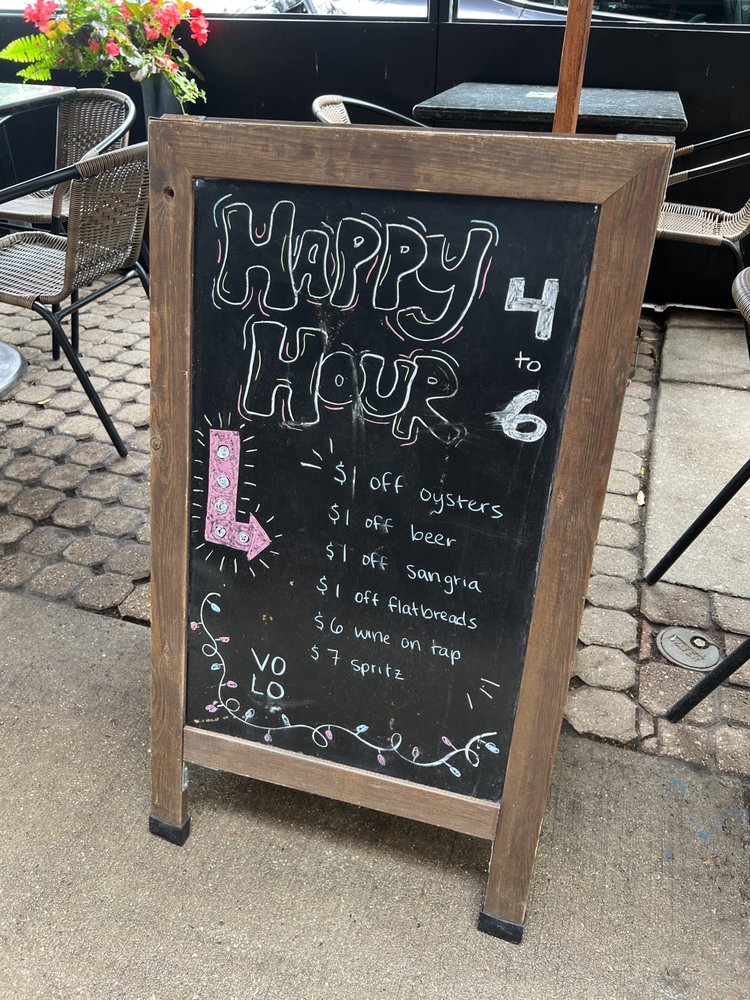 HAPPY
HOUR
4
to
6
$1 off oysters
$1 off beer
$1 off sangria
$1 off flatbreads
$6 wine on tap
$7 spritz
VO
LO